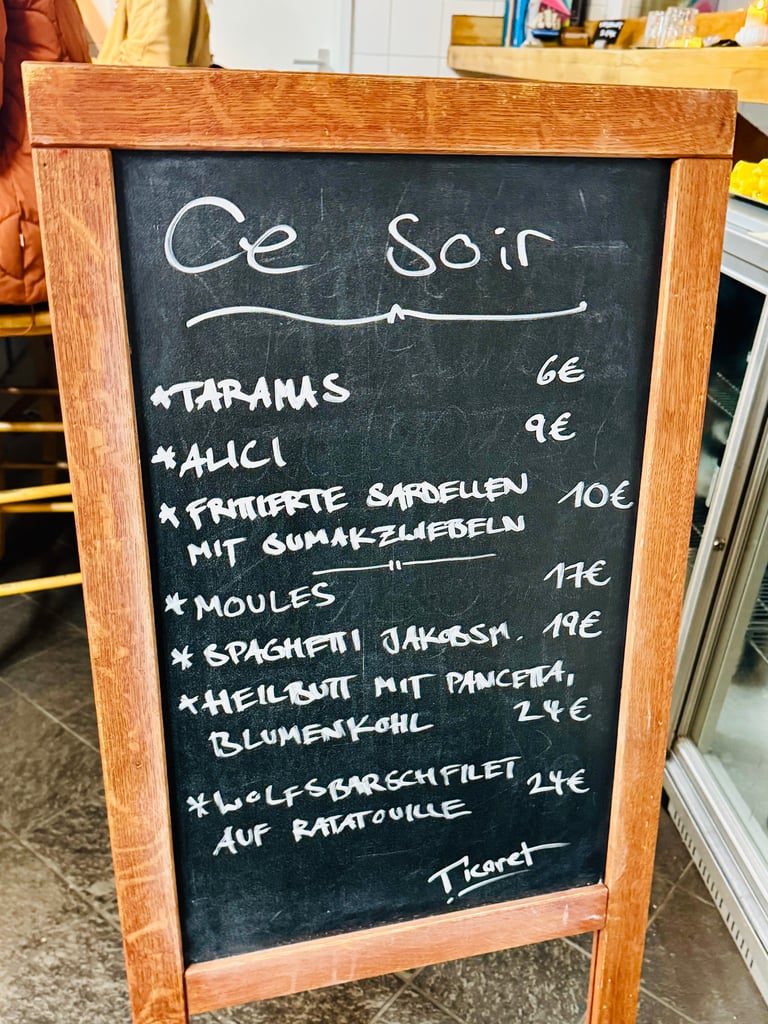 Ce Soir
*TARAMAS 6€
*ALICI 9€
*FRITTIERTE SARDELLEN 10€
MIT SUMAKZWIEBELN
*MOULES 17€
*SPAGHETTI JAKOBSM. 19€
*HEILBUTT MIT PANCETTA,
BLUMENKOHL 24€
*WOLFSBARSCHFILET 24€
AUF RATATOUILLE
Ticaret